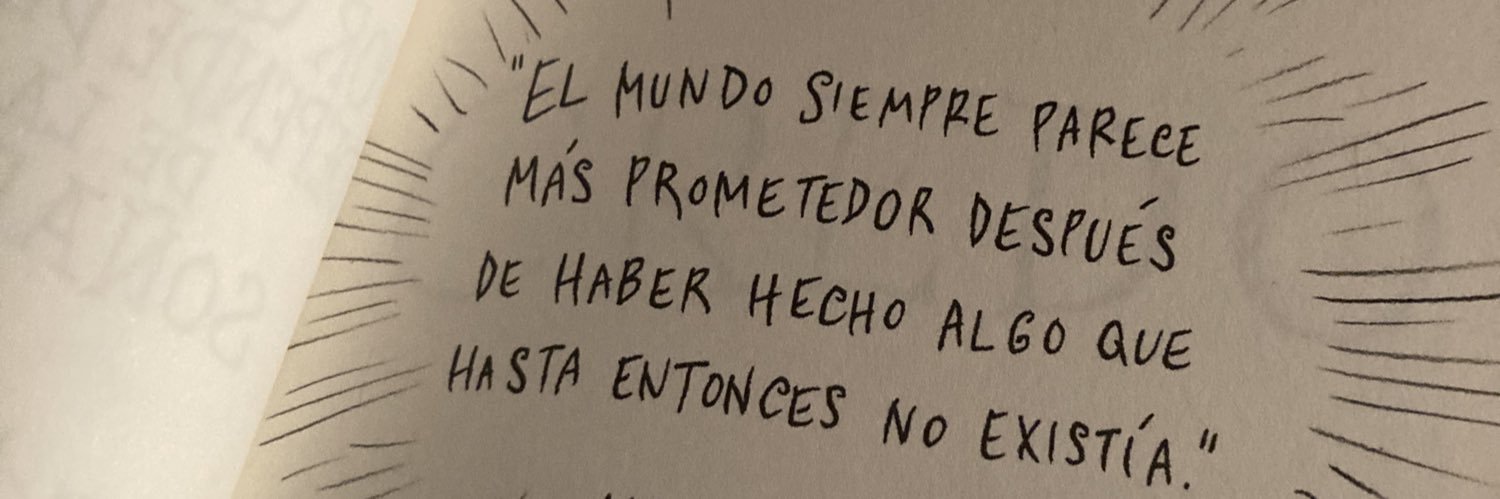 "EL MUNDO SIEMPRE PARECE
MÁS PROMETEDOR DESPUÉS
DE HABER HECHO ALGO QUE
HASTA ENTONCES NO EXISTÍA."